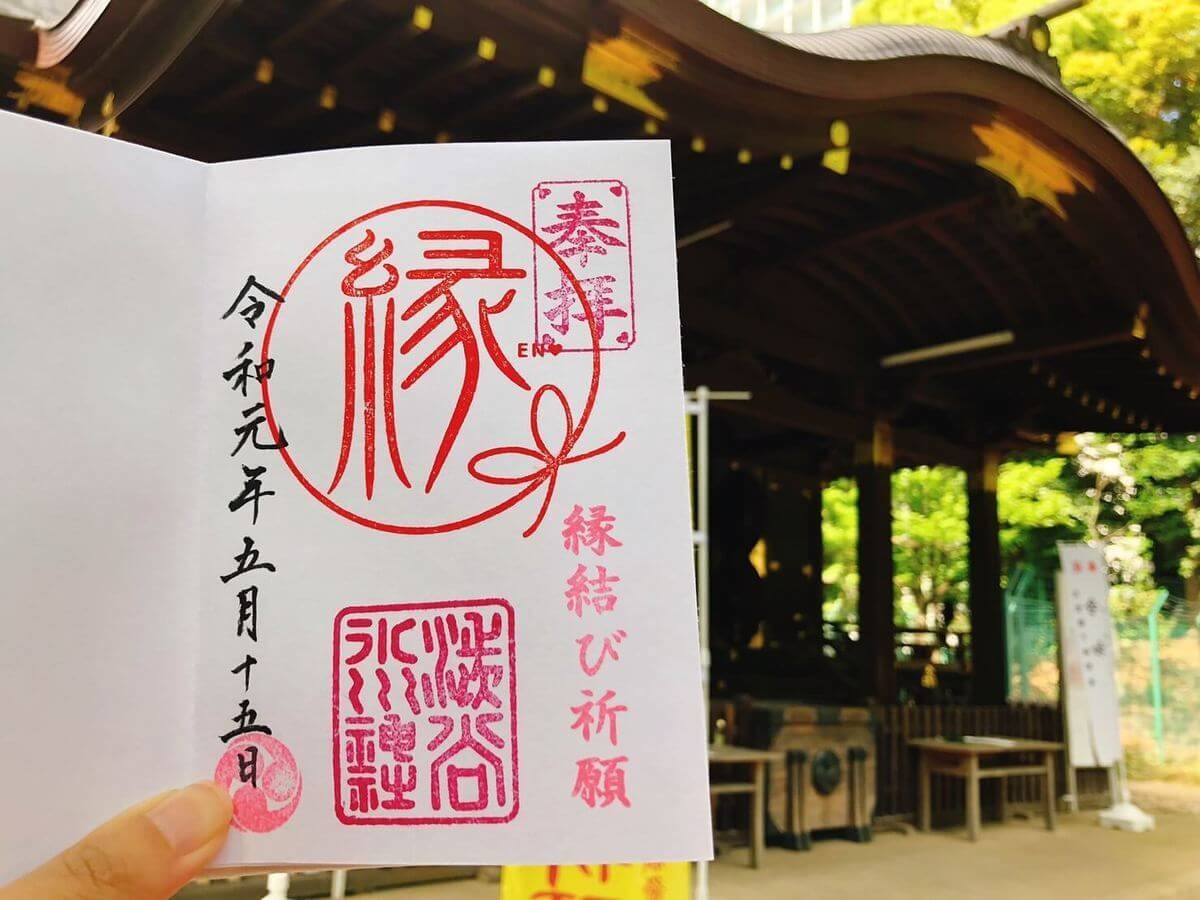 奉拝
縁
EN♥
縁結び祈願
渋谷
氷川神社
令和元年五月十五日